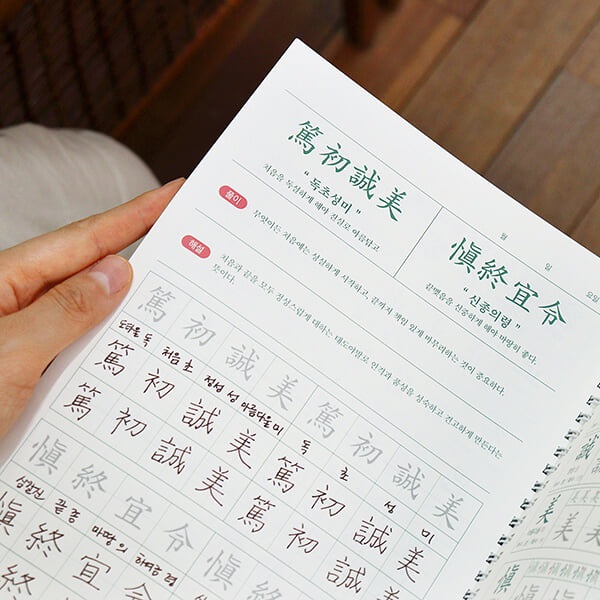 篤初誠美
“ 독초성미 ”
처음을 독실하게 해야 진실로 아름답고
월 일 요일
愼終宜令
“ 신종의령 ”
끝맺음을 신중하게 해야 마땅히 좋다.
풀이
무엇이든 처음에는 성실하게 시작하고, 끝까지 책임 있게 마무리하는 것이 중요하다.
해설
처음과 끝을 모두 정성스럽게 대하는 태도야말로 인격과 품성을 성숙하고 견고하게 만든다는
뜻이다.
篤 初 誠 美 篤 初 誠 美
도타울 독 처음 초 정성 성 아름다울 미 독 초 성 미
篤 初 誠 美 篤 初 誠 美
篤 初 誠 美 篤 初 誠 美
愼 終 宜 令
삼갈 신 끝 종 마땅 의 하여금 령
愼 終 宜 令
終 宜